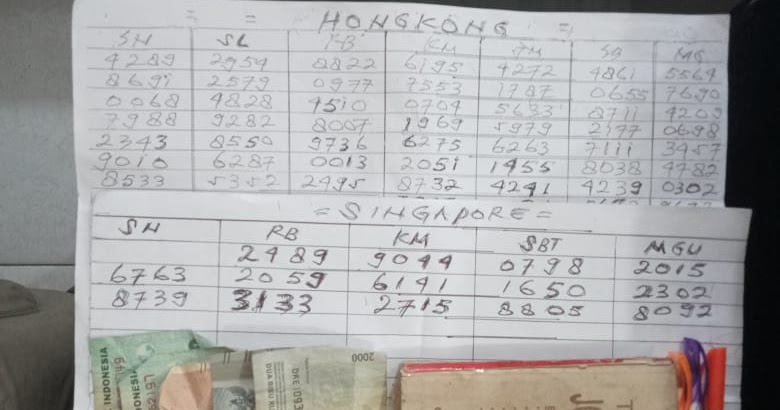 = = HONGKONG =
SN SL RB KM JM SB MG
4289 2954 8822 6195 4272 4861 5564
8691 2579 0977 7553 1787 0655 7690
0068 4828 4510 0704 5633 8711 4209
7988 9282 8007 1969 5979 2177 0698
2343 8550 9736 6275 6263 7111 3457
9010 6287 0013 2051 1455 8038 4782
8533 5352 2495 8732 4241 4239 0302
= SINGAPORE =
SN RB KM SBT MGU
2489 9044 0798 2015
6763 2059 6141 1650 2302
8739 3133 2715 8805 8092
INDONESIA
2000